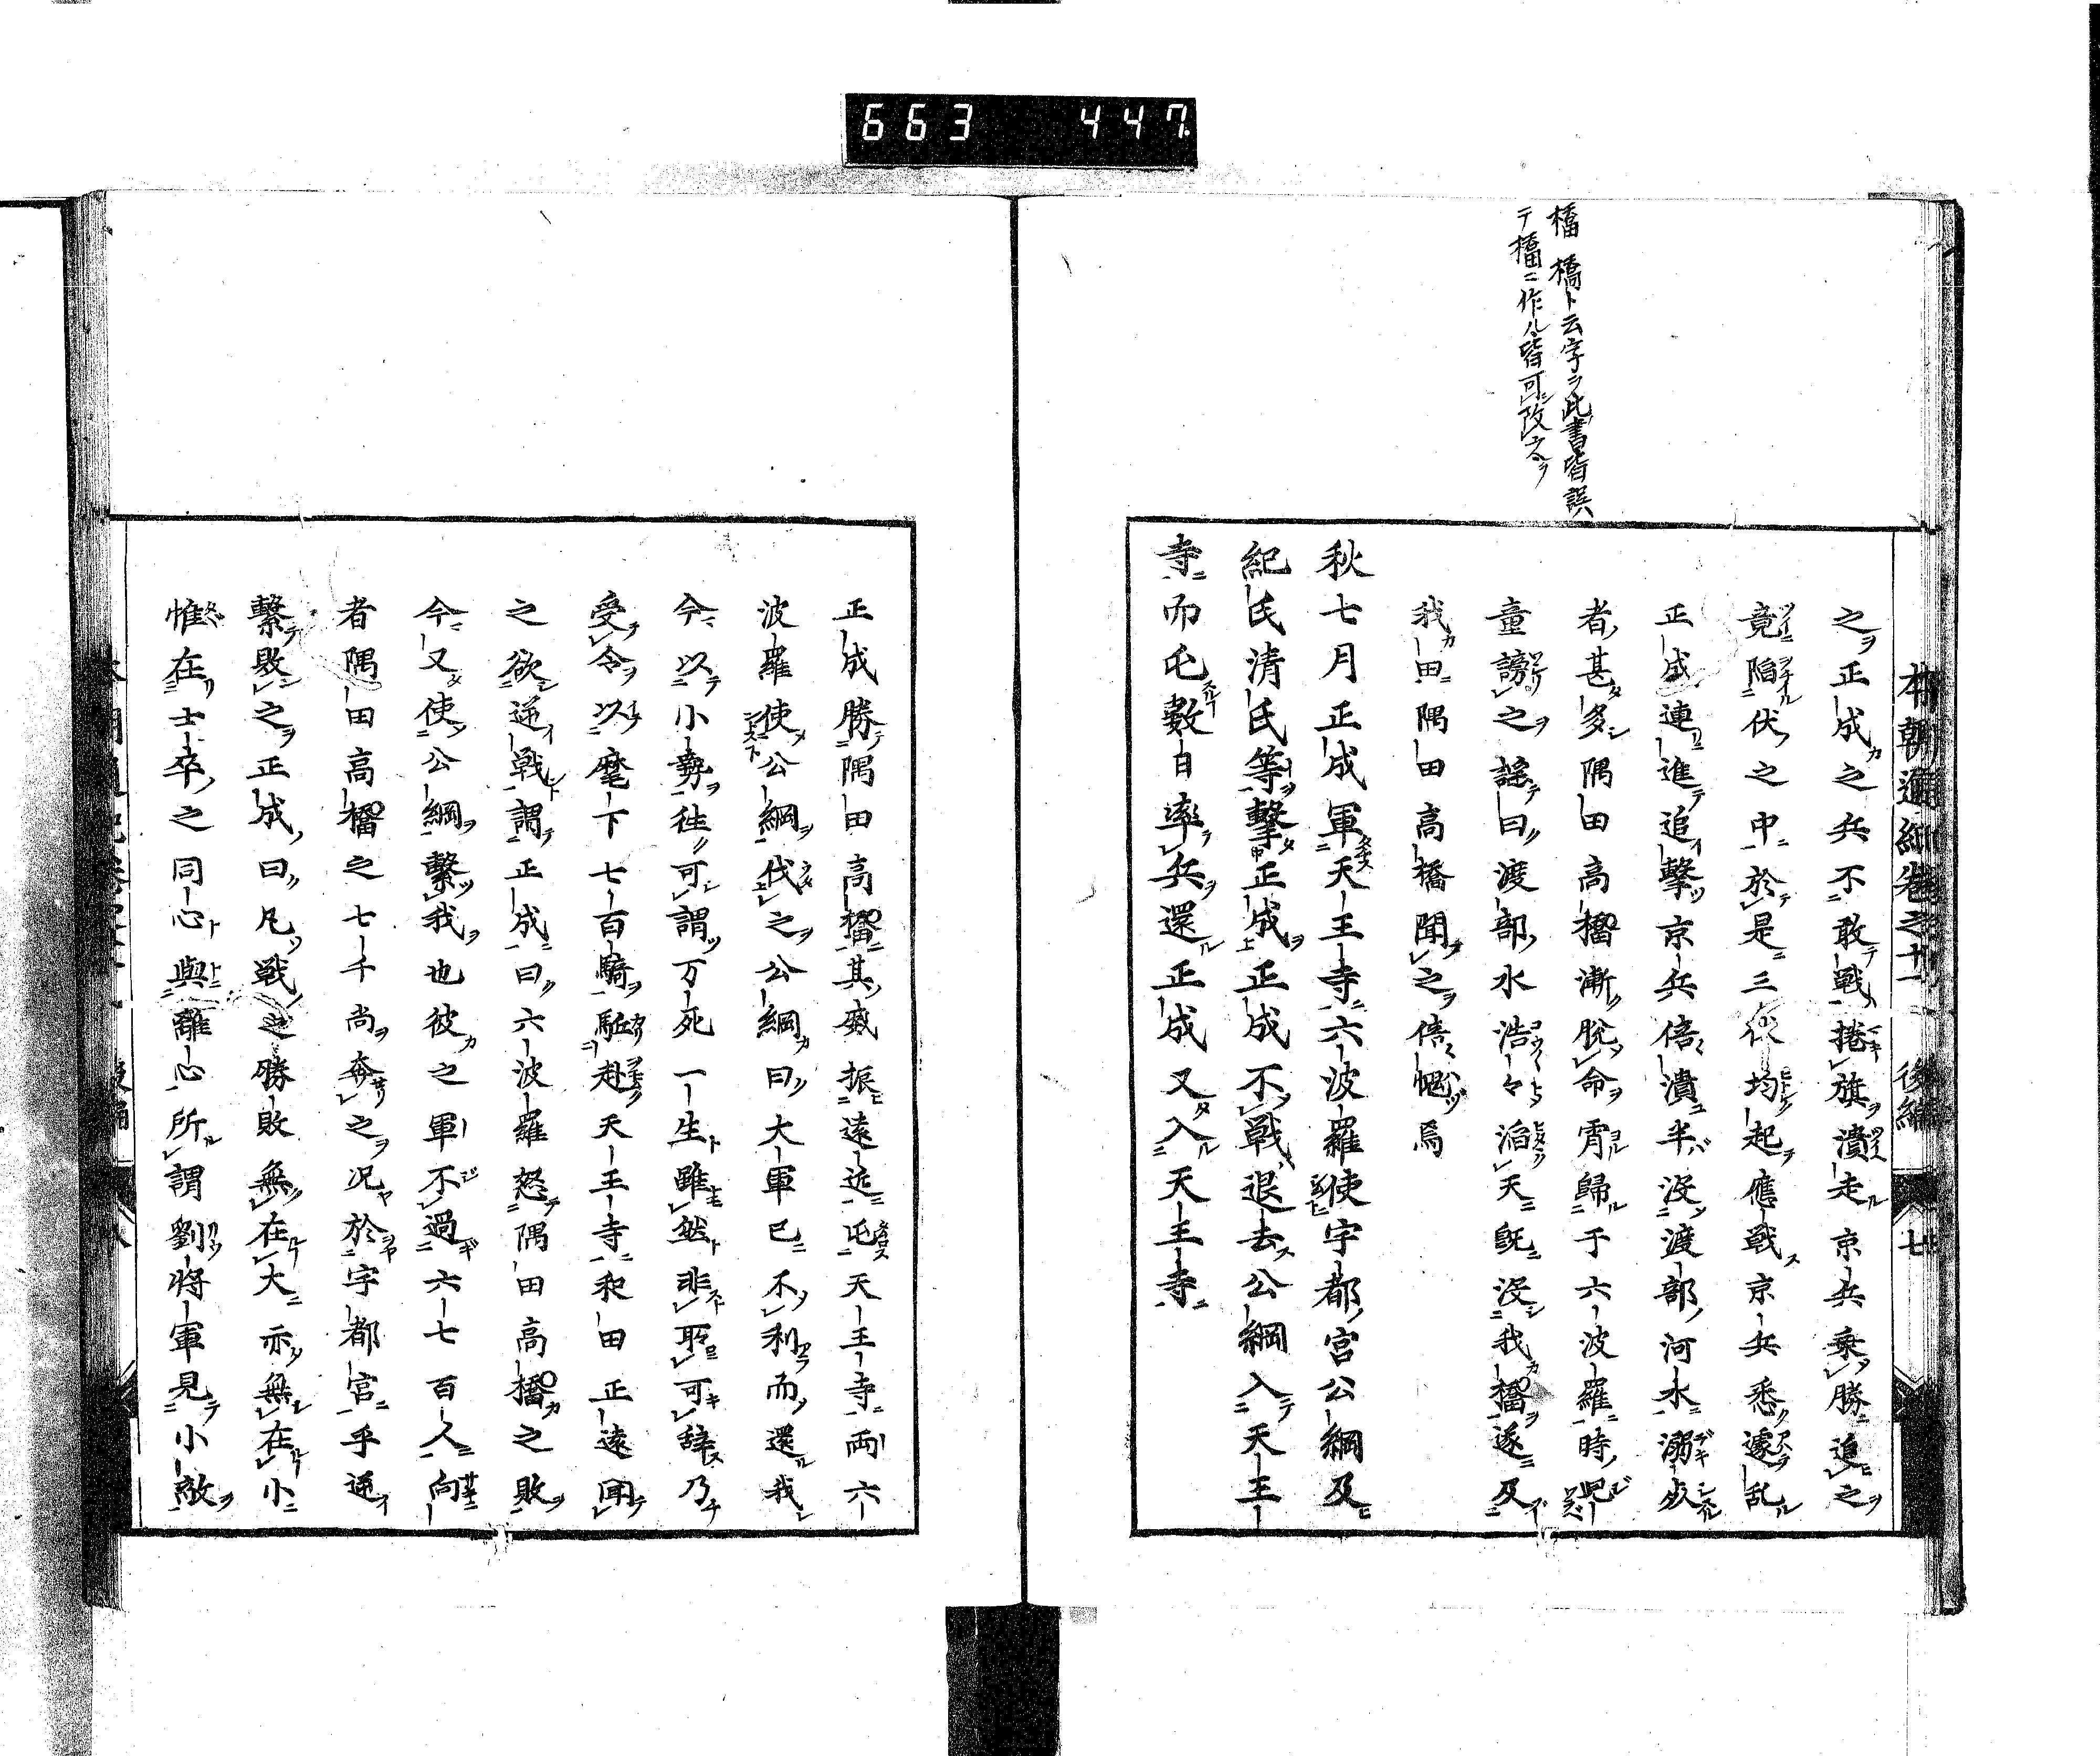 663 447
橋 橋ト云字ヲ此書皆誤
テ㮯ニ作ル皆可改之ヲ
本朝通紀卷之十一 後編 七
之正成之兵不敢戰捲旗潰走京兵乘勝追之
竟陷伏之中於是三伏均起應戰京兵悉遽乱
正成連進追擊京兵倍潰半沒渡部河水溺死
者甚多隅田高橋漸脫命霄歸于六波羅時児
童謗之謠曰渡部水浩々滔天既沒我橋逐及
我田隅田高橋聞之倍愧焉
秋七月正成軍天王寺六波羅使宇都宮公綱及
紀氏清氏等擊正成正成不戰退去公綱入天王
寺而屯數日率兵還正成又入天王寺
正成勝隅田高橋其威振遠近屯天王寺両六
波羅使公綱伐之公綱曰大軍已不利而還我
今以小勢徃可謂万死一生雖然非所可辞乃
受令以麾下七百騎駈赴天王寺和田正遠聞
之欲逆戰謂正成曰六波羅怒隅田高橋之敗
今又使公綱擊我也彼之軍不過六七百人向
者隅田高橋之七千尚奔之况於宇都宮乎逆
擊敗之正成曰凡戰之勝敗無在大亦無在小
惟在士卒之同心與離心所謂劉將軍見小敵